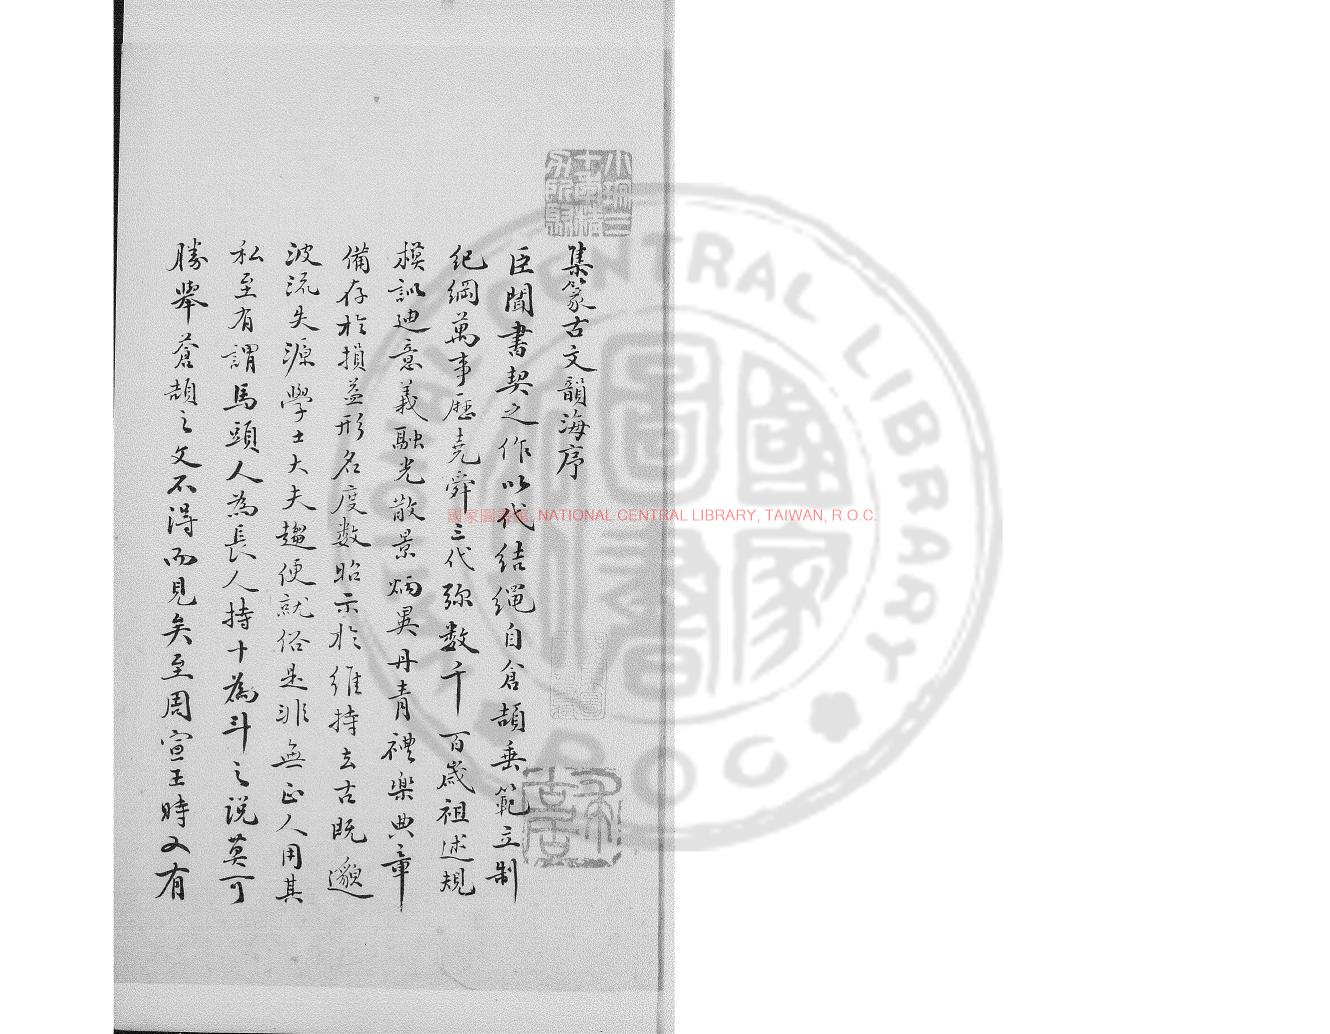 集篆古文韻海序
臣聞書契之作以代結繩自倉頡垂範立制
紀綱萬事歷堯舜三代弥数千百歲祖述規
模訓迪意義融光散景炳畧丹青禮樂典章
備存於損益形名度数昭示於維持去古既邈
波流失源學士大夫趨便就俗是非無正人用其
私至有謂馬頭人為長人持十為斗之說莫可
勝舉蒼頡之文不得而見矣至周宣王時又有
國家圖書館, NATIONAL CENTRAL LIBRARY, TAIWAN, R.O.C.
NATIONAL CENTRAL LIBRARY
R.O.C